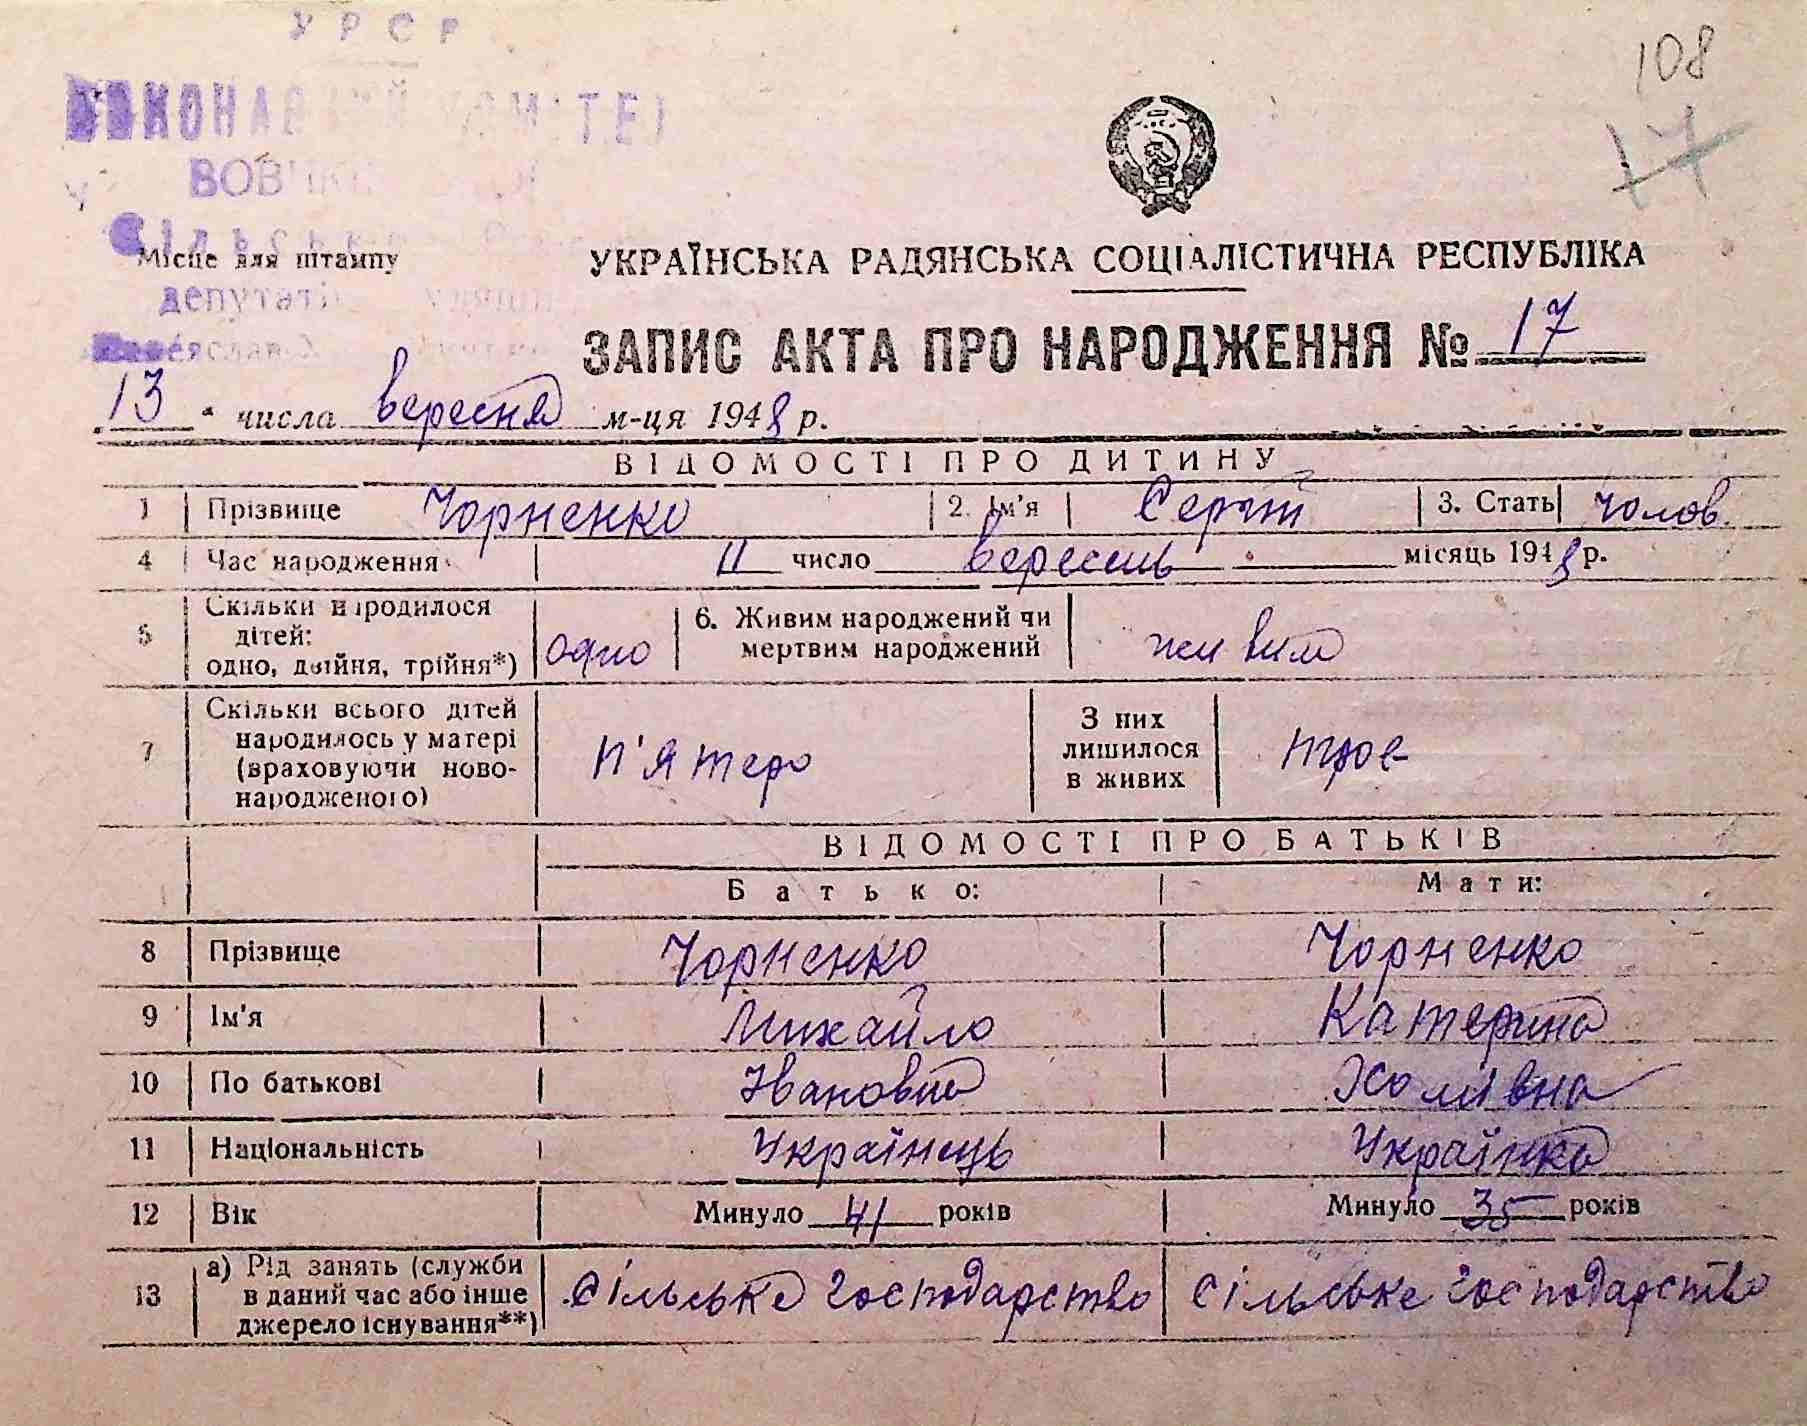 УРСР
108
17
Місце для штампу
УКРАЇНСЬКА РАДЯНСЬКА СОЦІАЛІСТИЧНА РЕСПУБЛІКА
ЗАПИС АКТА ПРО НАРОДЖЕННЯ № 17
13 " числа вересня м-ця 1948 р.
ВІДОМОСТІ ПРО ДИТИНУ
1 Прізвище Чорненко 2. Ім'я Сергій 3. Стать чолов.
4 Час народження 11 число вересень місяць 1948 р.
5 Скільки народилося дітей: одно, двійня, трійня*) одно 6. Живим народжений чи мертвим народжений живим
7 Скільки всього дітей народилось у матері (враховуючи ново-народженого) п'ятеро З них лишилося в живих троє
ВІДОМОСТІ ПРО БАТЬКІВ
Батько: Мати:
8 Прізвище Чорненко Чорненко
9 Ім'я Михайло Катерина
10 По батькові Іванович Хомівна
11 Національність Українець Українка
12 Вік Минуло 41 років Минуло 35 років
13 а) Рід занять (служби в даний час або інше джерело існування**) сільське господарство сільське господарство